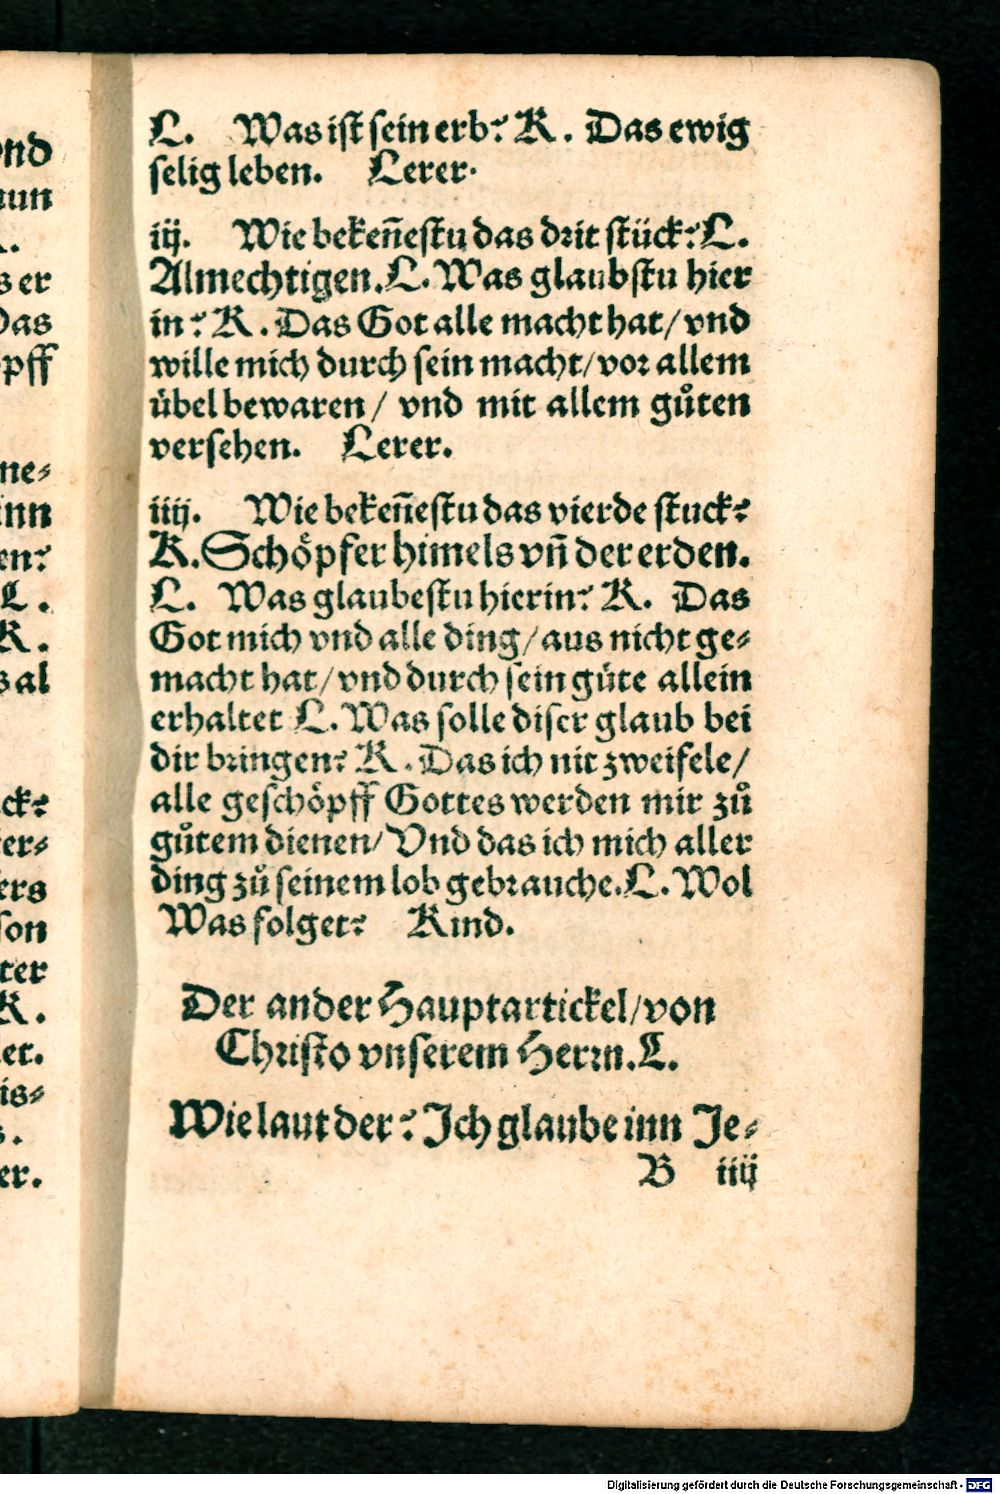 L. Was ist sein erb? K. Das ewig
selig leben. Lerer.
iij. Wie bekeñestu das drit stück? L.
Almechtigen. L. Was glaubstu hier
in? K. Das Got alle macht hat/ vnd
wille mich durch sein macht/ vor allem
übel bewaren/ vnd mit allem gůten
versehen. Lerer.
iiij. Wie bekeñestu das vierde stuck?
K. Schöpfer himels vñ der erden.
L. Was glaubestu hierin? K. Das
Got mich vnd alle ding/ aus nicht ge-
macht hat/ vnd durch sein güte allein
erhaltet L. Was solle diser glaub bei
dir bringen? K. Das ich nit zweifele/
alle geschöpff Gottes werden mir zů
gůtem dienen/ Vnd das ich mich aller
ding zů seinem lob gebrauche. L. Wol
Was folget? Kind.
Der ander Hauptartickel/ von
Christo vnserem Herrn. L.
Wie laut der? Ich glaube inn Je-
B iiij
Digitalisierung gefördert durch die Deutsche Forschungsgemeinschaft - DFG